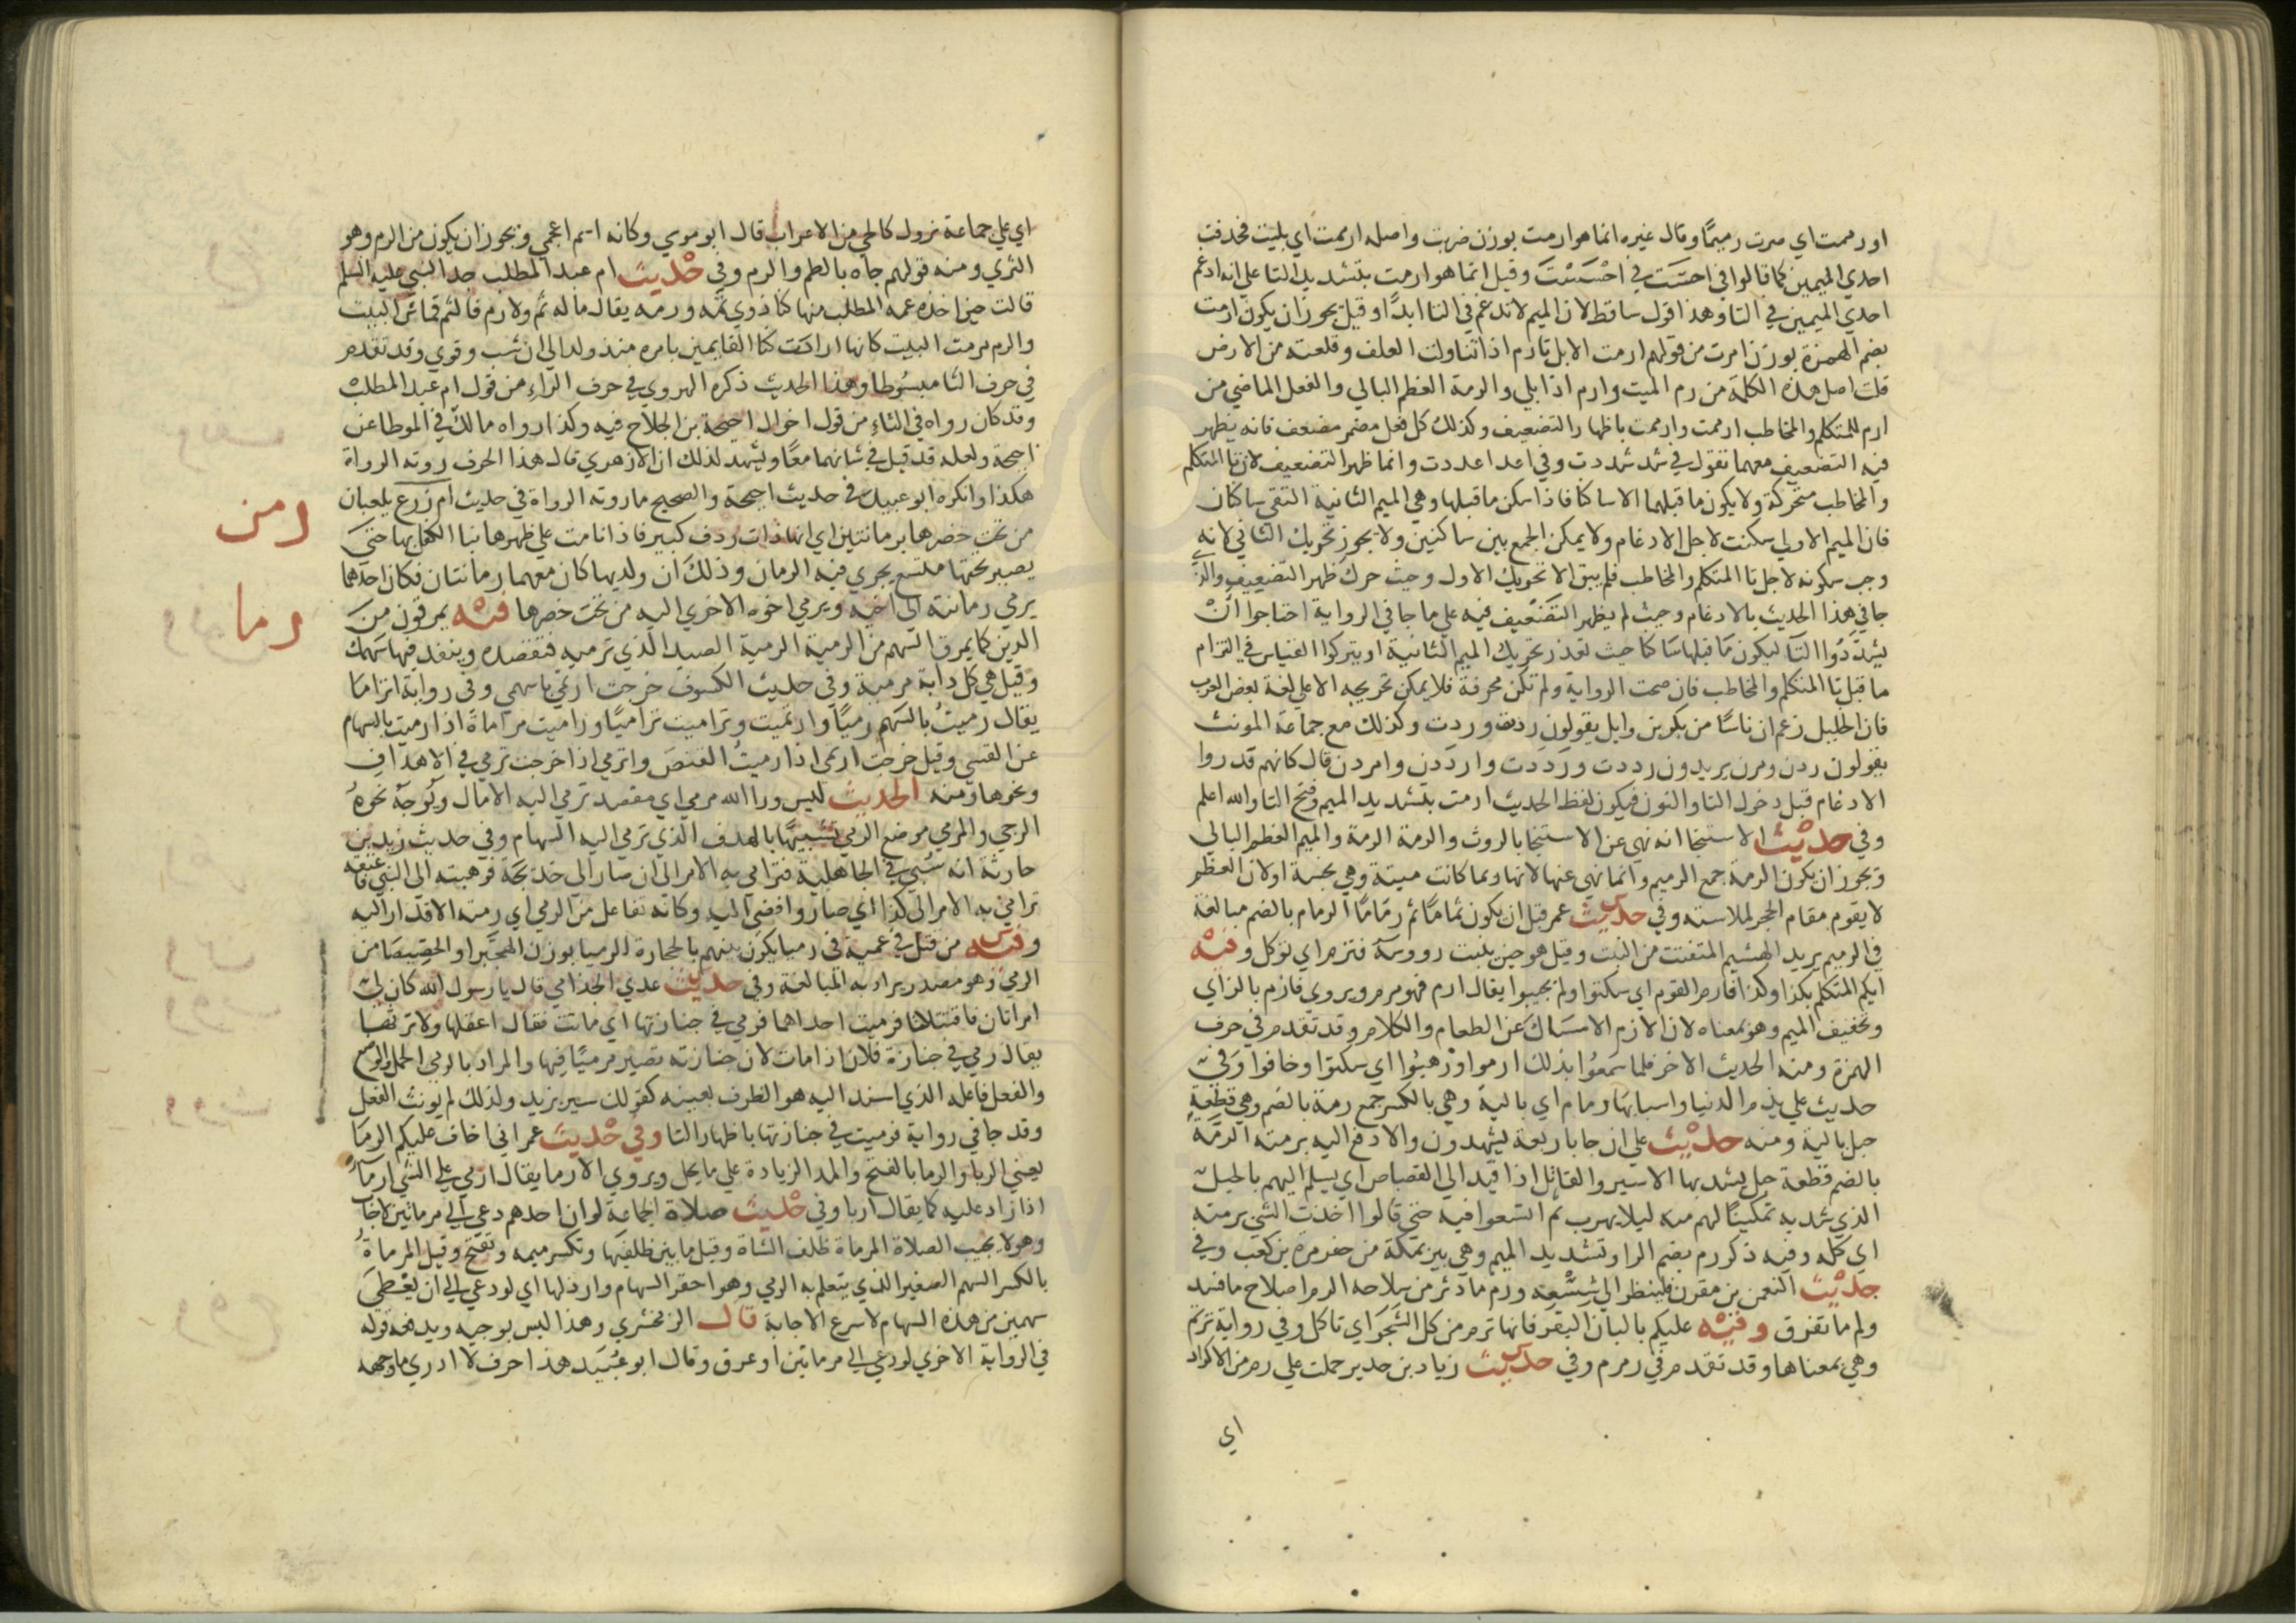 او رممت اي صرت رميمًا وقال غيره انما هو ارمت بوزن ضربت واصله ارممت اي بليت فحذفت
احدي الميمين كما قالوا في احسَت في احْسَسْتَ وقيل انما هو ارمت بتشديد التا علي انه ادغم
احدي الميمين في التا وهذا قول ساقط لان الميم لا تدغم في التا ابدًا وقيل يجوز ان يكون ارمت
بضم الهمزة بوزن امرت من قولهم ارمت الابل تارم اذا تناولت العلف وقلعته من الارض
قلت اصل هذه الكلمة من رم الميت وارم اذا بلي والرمة العظم البالي والفعل الماضي من
ارم للمتكلم والمخاطب ارممت وارممت باظهار التضعيف وكذلك كل فعل مضمر مضعف فانه يظهر
فيه التضعيف معهما تقول في شد شددت وفي اعد اعددت وانما ظهر التضعيف لان تا المتكلم
والمخاطب متحركة ولا يكون ما قبلهما الا ساكنا فاذا سكن ما قبلها وهي الميم الثانية التقي ساكنان
فان الميم الاولي سكنت لاجل الادغام ولا يمكن الجمع بين ساكنين ولا يجوز تحريك الثاني لانه
وجب سكونه لاجل تا المتكلم والمخاطب فلم يبق الا تحريك الاول وحيث حرك ظهر التضعيف والذي
جا في هذا الحديث بالادغام وحيث لم يظهر التضعيف فيه علي ما جا في الرواية احتاجوا انْ
يشدّدُوا التا ليكون مَا قبلها سَاكنا حيث تعذر تحريك الميم الثانية او يتركوا القياس في التزام
ما قبل تا المتكلم والمخاطب فان صحت الرواية ولم تكن محرفة فلا يمكن تخريجه الا علي لغة بعض العرب
فان الخليل زعم ان ناسًا من بكر بن وايل يقولون ردت وردت وكذلك مع جماعة المونث
يقولون ردن ومرن يريدون رددت ورَددت وارددن وامردن قال كانهم قدروا
الادغام قبل دخول التا والنون فيكون لفظ الحديث ارمت بتشديد الميم وفتح التا والله اعلم
وفي حديث الاستنجا انه نهي عن الاستنجا بالروث والرمة الرمة والميم العظم البالي
ويجوز ان يكون الرمة جمع الرميم وانما نهي عنها لانها ربما كانت ميتة وهي نجسة او لان العظم
لا يقوم مقام الحجر لملاسته وفي حديث عمر قبل ان يكون ثمامًا ثم رمَامًا الرمام بالضم مبالغة
في الرميم يريد الهشيم المتفتت من النبت وقيل هو حين ينبت رووسه فترم اي توكل وفيه
ايكم المتكلم بكذا وكذا فارم القوم اي سكتوا ولم يجيبوا يقال ارم فهو مرم ويروي فازم بالزاي
وتخفيف الميم وهو بمعناه لان الازم الامسَاك عن الطعام والكلام وقد تقدم في حرف
الهمزة ومنه الحديث الاخر فلما سَمعُوا بذلك ارموا ورَهبُوا اي سكتوا وخافوا وفي
حديث علي يذم الدنيا واسبابها رمام اي بالية وهي بالكسر جمع رمة بالضم وهي قطعة
حبل بالية ومنه حديث علي ان جا باربعة يشهدون والا دفع اليه برمته الرمّة
بالضم قطعة حبل يشد بها الاسير والقاتل اذا قيد الي القصاص اي يسلم اليهم بالحبل
الذي شد به تمكينًا لهم منه ليلا يهرب ثم اتسعوا فيه حتي قالوا اخذت الشي برمته
اي كله وفيه ذكر رم بضم الرا وتشديد الميم وهي بير بمكة من حفر مرة بن كعب وفي
حديث النعمن بن مقرن فلينظر الي شِسْعِه ورم ما دثر من سلاحه الرم اصلاح ما فسد
ولم ما تفرق وفيه عليكم بالبان البقر فانها ترم من كل الشجر اي تاكل وفي رواية ترتم
وهي بمعناها وقد تقدم في رمرم وفي حديث زياد بن حدير حملت علي رم من الاكراد
اي
اي علي جماعة نزول كالحي من الاعراب قال ابو موسي وكانه اسم اعجمي ويجوز ان يكون من الرم وهو
الثري ومنه قولهم جاه بالطم والرم وفي حديث ام عبد المطلب جد النبي عليه السلم
قالت حين اخذه عمه المطلب منها كنا ذوي ثمّه ورمه يقال ماله ثم ولا رم فالثم قماش البيت
والرم مرمت البيت كانها ارادت كنا القايمين بامره منذ ولد الي ان شب وقوي وقد تقدم
في حرف الثا مبسُوطا وهذا الحديث ذكره الهروي في حرف الراء من قول ام عبد المطلب
وقد كان رواه في الثاء من قول اخوال احيحة بن الجلاح فيه وكذا رواه مالك في الموطا عن
احيحة ولعله قد قيل في شانهما معًا ويشهد لذلك ان الازهري قال هذا الحرف روته الرواة
هكذا وانكره ابو عبيد في حديث احيحة والصحيح ما روته الرواة في حديث ام زرع يلعبان
رمن
من تحت خصرها برمانتين اي انها ذات ردف كبير فاذا نامت علي ظهرها نبا الكفل بها حتي
يصير تحتها متسع يجري فيه الرمان وذلك ان ولديها كان معهما رمانتان فكان احدهما
رما
يرمي رمانته الي اخيه ويرمي اخوه الاخري اليه من تحت خصرها فيه يمرقون من
الدين كما يمرق السهم من الرمية الرمية الصيد الذي ترميه فتقصده وينفد فيها سَهمك
وقيل هي كل دابة مرمية وفي حديث الكسوف خرجت ارتمي باسهمي وفي رواية اترامَا
يقال رميتُ بالسَهم رميًا وارتميت وتراميت تراميًا وراميت مراماة اذا رميت بالسهام
عن القسي وقيل خرجت ارتمي اذا رميتُ القنصَ واترمي اذا خرجت ترمي في الاهدَاف
ونحوها ومنه الحديث ليس ورا الله مرمي اي مقصد ترمي اليه الامال ويُوجه نحوهُ
الرجي والمرمي موضع الرمي تشبيهًا بالهدف الذي ترمي اليه السهام وفي حديث زيد بن
حارثة انه سُبي في الجاهلية فترامي به الامر الي ان صار الي خديجة فوهبته الي النبي فاعتقه
ترامي به الامر الي كذا اي صار وافضي اليه وكانه تفاعل من الرمي اي رمته الاقدار اليه
وفيه من قتل في عمية في رميا يكون بينهم بالحجارة الرميا بوزن الهجيرا والخصِيصَا من
الرمي وهو مصدر يراد به المبالغة وفي حديث عدي الجذامي قال يا رسول الله كان لي
امراتان فاقتتلتا فرميت احداهما فرمي في جنازتها اي ماتت فقال اعقلها ولا ترثها
يقال رمي في جنازة فلان اذا مات لان جنازته تصير مرميًا فيها والمراد بالرمي الحمل والوضع
والفعل فاعله الذي اسند اليه هو الظرف بعينه كقولك سير بزيد ولذلك لم يونث الفعل
وقد جا في رواية فرميت في جنازتها باظهار التا وفي حديث عمر اني اخاف عليكم الرمَا
يعني الربا والرما بالفتح والمد الزيادة علي ما يحل ويروي الارما يقال ارمي علي الشي ارمَاءً
اذا زاد عليه كما يقال اربا وفي حديث صلاة الجماعة لو ان احدهم دعي الي مرماتين لاجاب
وهو لا يجيب الصلاة المرماة ظلف الشاة وقيل ما بين ظلفيَها وتكسر ميمه وتفتح وقيل المرماةُ
بالكسر السهم الصغير الذي يتعلم به الرمي وهو احقر السهام وارذلها اي لو دعي الي ان يُعْطَي
سهمين من هذه السهام لاسرع الاجابة قال الزمخشري وهذا ليس بوجيه ويدفعه قوله
في الرواية الاخري لو دعي الي مرماتين او عرق وقال ابو عُبيَد هذا حرف لا ادري ما وجهه